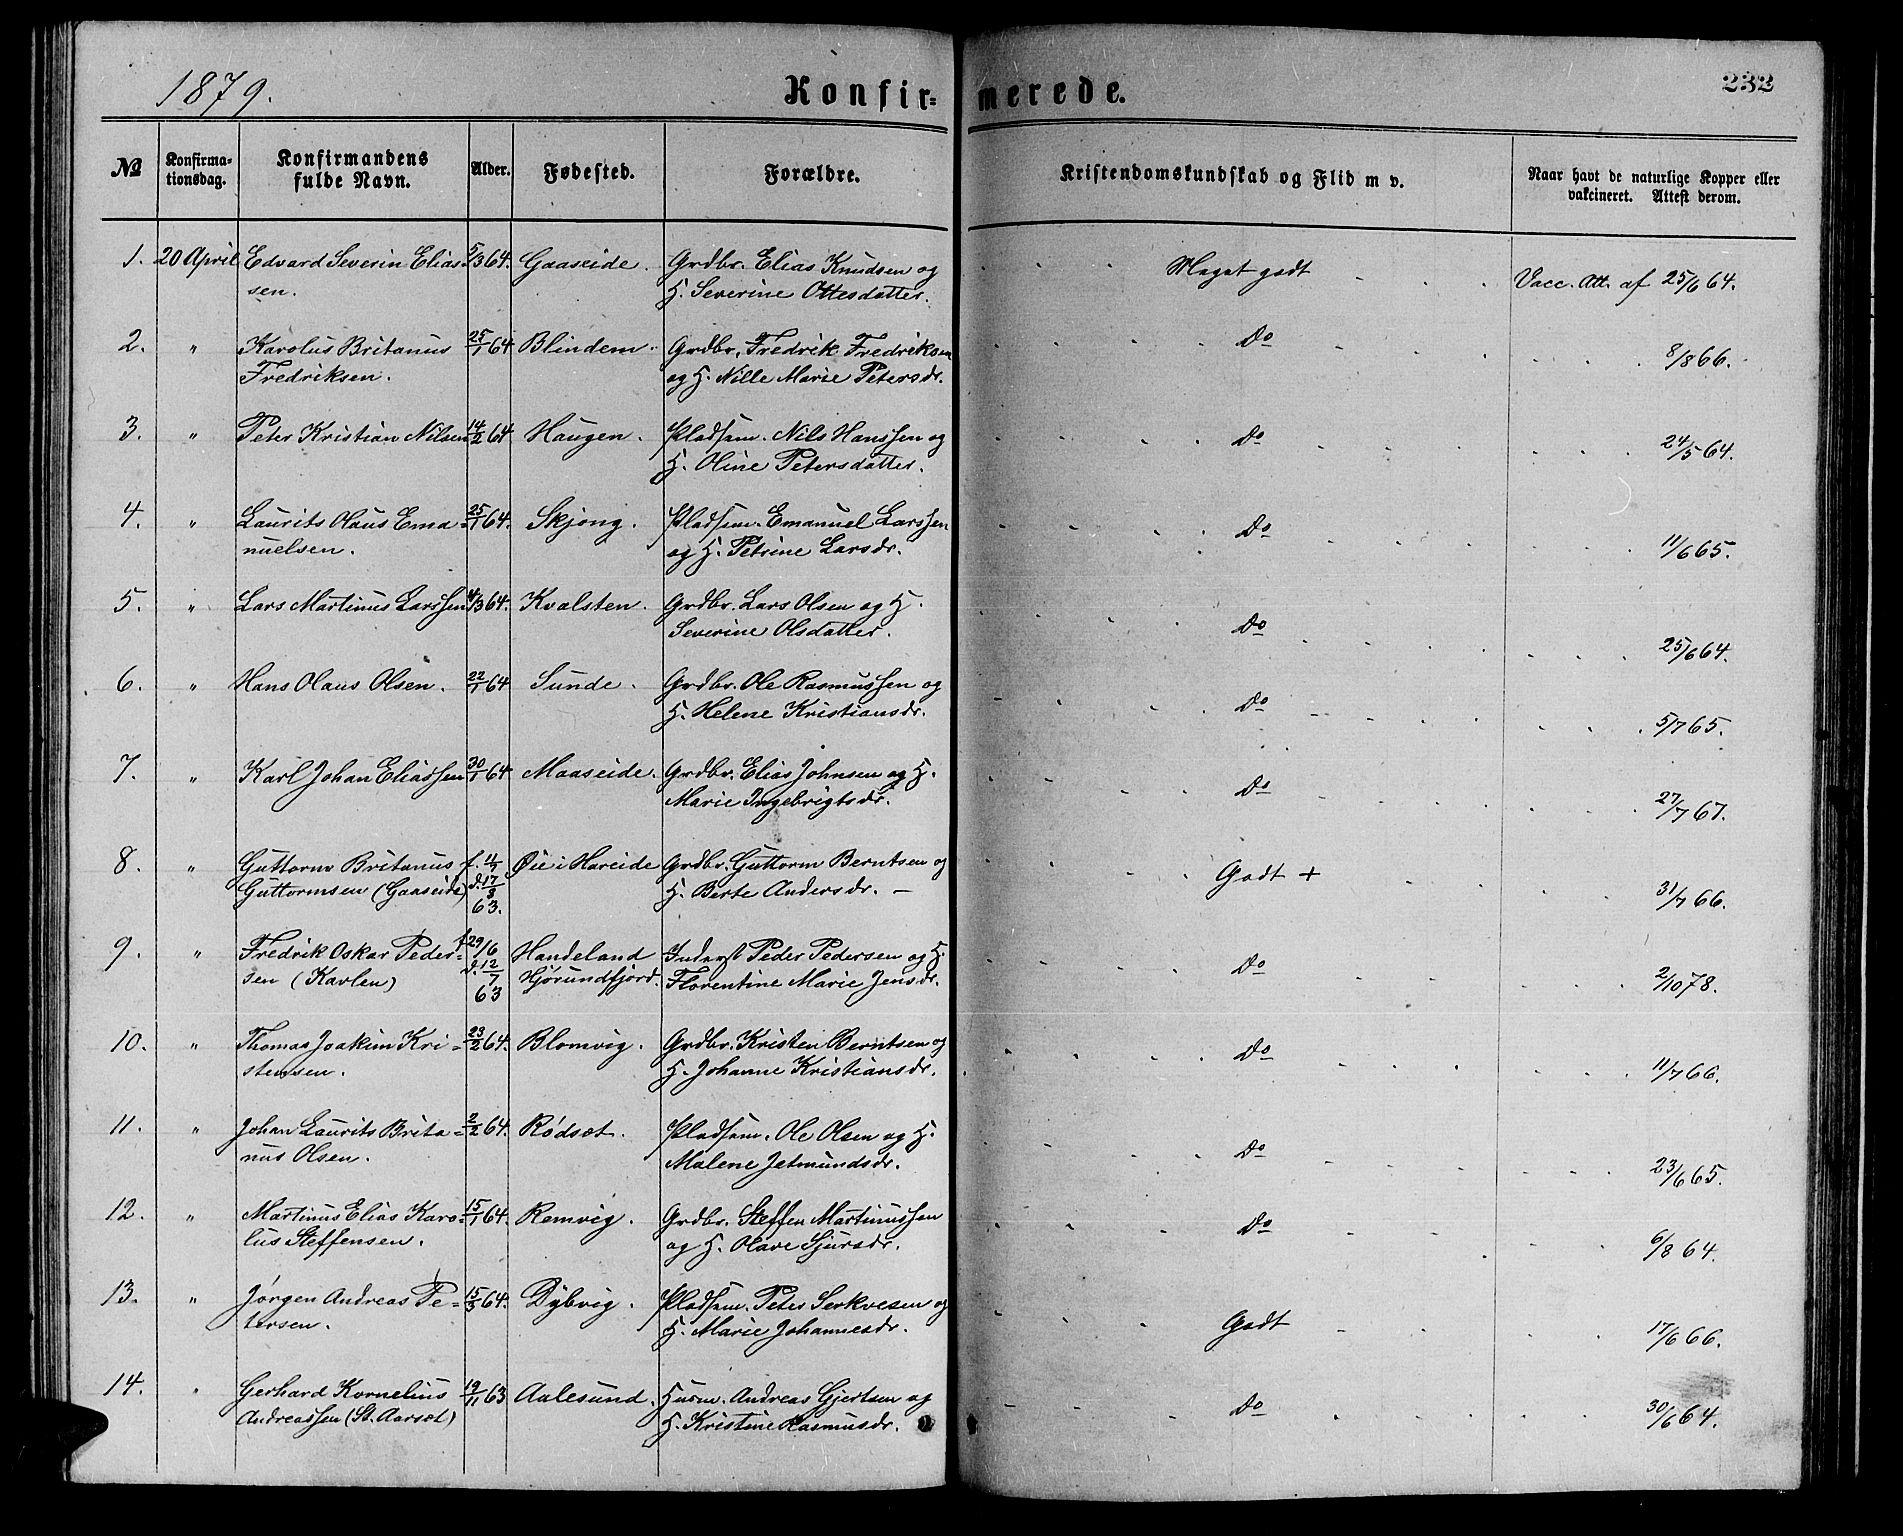 1879.
Konfir=
merede.
232
No
Konfirma-
tionsdag.
Konfirmandens
fulde Navn.
Alder.
Fødested.
Forældre.
Kristendomskundskab og Flid m v.
Naar havt de naturlige Kopper eller
vakcineret. Attest derom.
1. 20 April Edvard Severin Elias- 5/3 64. Gaaseide. Grdbr. Elias Knudsen og Meget godt Vacc. Att. af 25/6 64.
sen. H. Severine Ottesdatter.
2. " Karolus Britanus 25/1 64 Blindem. Grdbr. Fredrik Fredriksen Do 8/8 66.
Fredriksen. og H. Nille Marie Petersdr.
3. " Peter Kristian Nilsen 14/2 64 Haugen. Pladsm. Nils Hanssen og Do 24/5 64.
H. Oline Petersdatter.
4. " Laurits Olaus Ema= 25/1 64. Skjong. Pladsm. Emanuel Larssen Do 11/6 65.
nuelsen. og H. Petrine Larsdr.
5. " Lars Martinus Larssen 4/3 64. Kvalsten. Grdbr. Lars Olsen og H. Do 25/6 64.
Severine Olsdatter.
6. " Hans Olaus Olsen. 22/1 64 Sunde. Grdbr. Ole Rasmussen og Do 5/7 65.
H. Helene Kristiansdr.
7. " Karl Johan Eliassen 30/1 64 Maaseide. Grdbr. Elias Johnsen og H. Do 27/7 67.
Marie Ingebrigtsdr.
8. " Guttorm Britanus f. 4/7 Øie i Hareide Grdbr. Guttorm Berntsen og Godt + 31/7 66.
Guttormsen (Gaaseide) d. 17/8 H. Berte Andersdr. —
63.
9. " Fredrik Oskar Peder- f 29/6 Handeland Inderst Peder Pedersen og H. Do 2/10 78.
sen (Kavlen) d. 12/7 Hjørundfjord. Florentine Marie Jensdr.
63
10. " Thomas Joakim Kri= 23/2 64. Blomvig. Grdbr. Kristen Berntsen og Do 11/7 66.
stensen. H. Johanne Kristiansdr.
11. " Johan Laurits Brita= 2/2 64. Rødsæt. Pladsm. Ole Olsen og H. Do 23/6 65.
nus Olsen. Malene Jetmundsdr.
12. " Martinus Elias Karo= 15/1 64. Remvig. Grdbr. Steffen Martinussen Do 6/8 64.
lus Steffensen. og H. Olave Sjursdr.
13. " Jørgen Andreas Pe= 15/3 64. Dybvig. Pladsm. Peter Serkvesen og Godt 17/6 66.
tersen. H. Marie Johannesdr.
14. " Gerhard Kornelius 19/11 63 Aalesund. Husm. Andreas Gjertsen og Do 30/6 64.
Andreassen (St. Aarsæt) H. Kristine Rasmusdr.